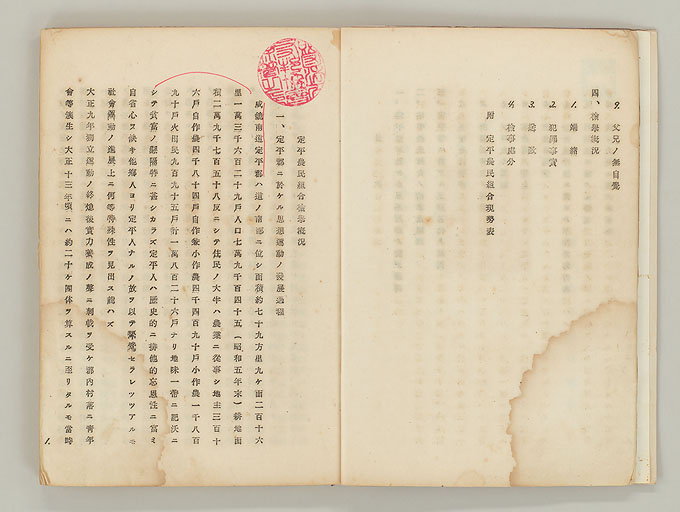 9. 父兄ノ無自覺
四、檢擧槪況
1. 端緖
2. 犯罪事實
3. 送致
4. 檢事處分
附 定平農民組合現勢表
定平農民組合檢擧槪況
一、定平郡ニ於ケル思想運動ノ發展過程
咸鏡南道定平郡ハ道ノ南部ニ位シ面積約七十九方里九ケ面二百十六
里一萬三千六百二十九戶人口七萬九千百四十五(昭和五年末)耕地面
積二萬九千七百五十八反ニシテ住民ノ大半ハ農業ニ從事シ地主三百十
六戶自作農四千八十四戶自作兼小作農四千四百九十戶小作農一千八百
九十戶火田民九百九十五戶計一萬八百二十六戶ナリ地味一帶ニ肥沃ニ
シテ貧富ノ懸隔等ニ甚シカラズ定平人ハ歷史的ニ排他的忘恩性ニ富ミ
自省心ヲ缺キ他鄕人ヨリ定平人ナルノ故ヲ以テ セラレツツアルモ
社會運動ノ進展上ニ何等特殊性ヲ見出ス能ハズ
大正九年獨立運動ノ終熄後實力養成ノ聲ニ刺戟ヲ受ケ郡內村落ニ靑年
會等簇生シ大正十三年頃ニハ約二十ケ團体ヲ算スルニ至リタルモ當時
1.